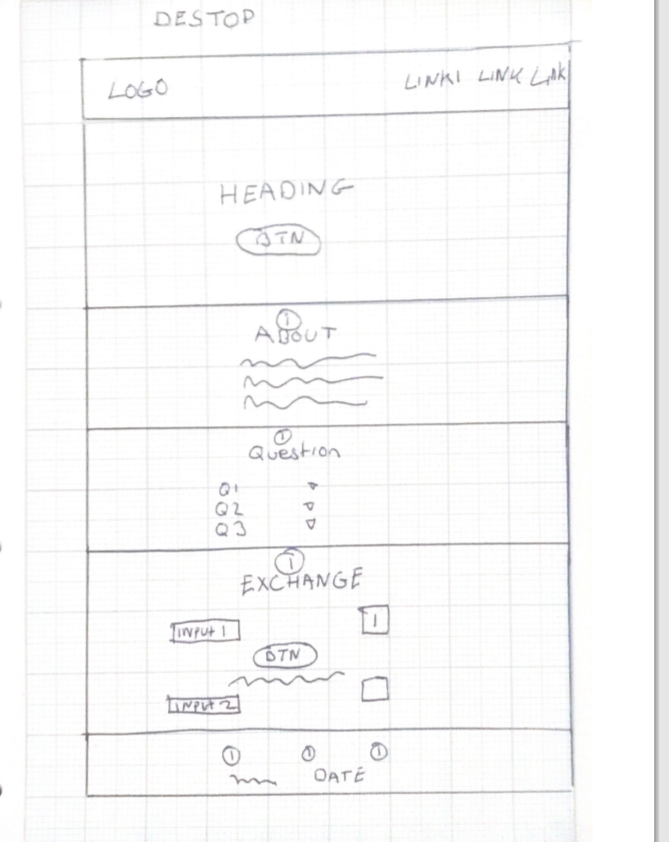 DESTOP
LOGO LINK1 LINK LINK
HEADING
BTN
1
ABOUT
1
Question
Q1
Q2
Q3
1
EXCHANGE
INPUT 1 1
BTN
INPUT 2
1 1 1
DATE